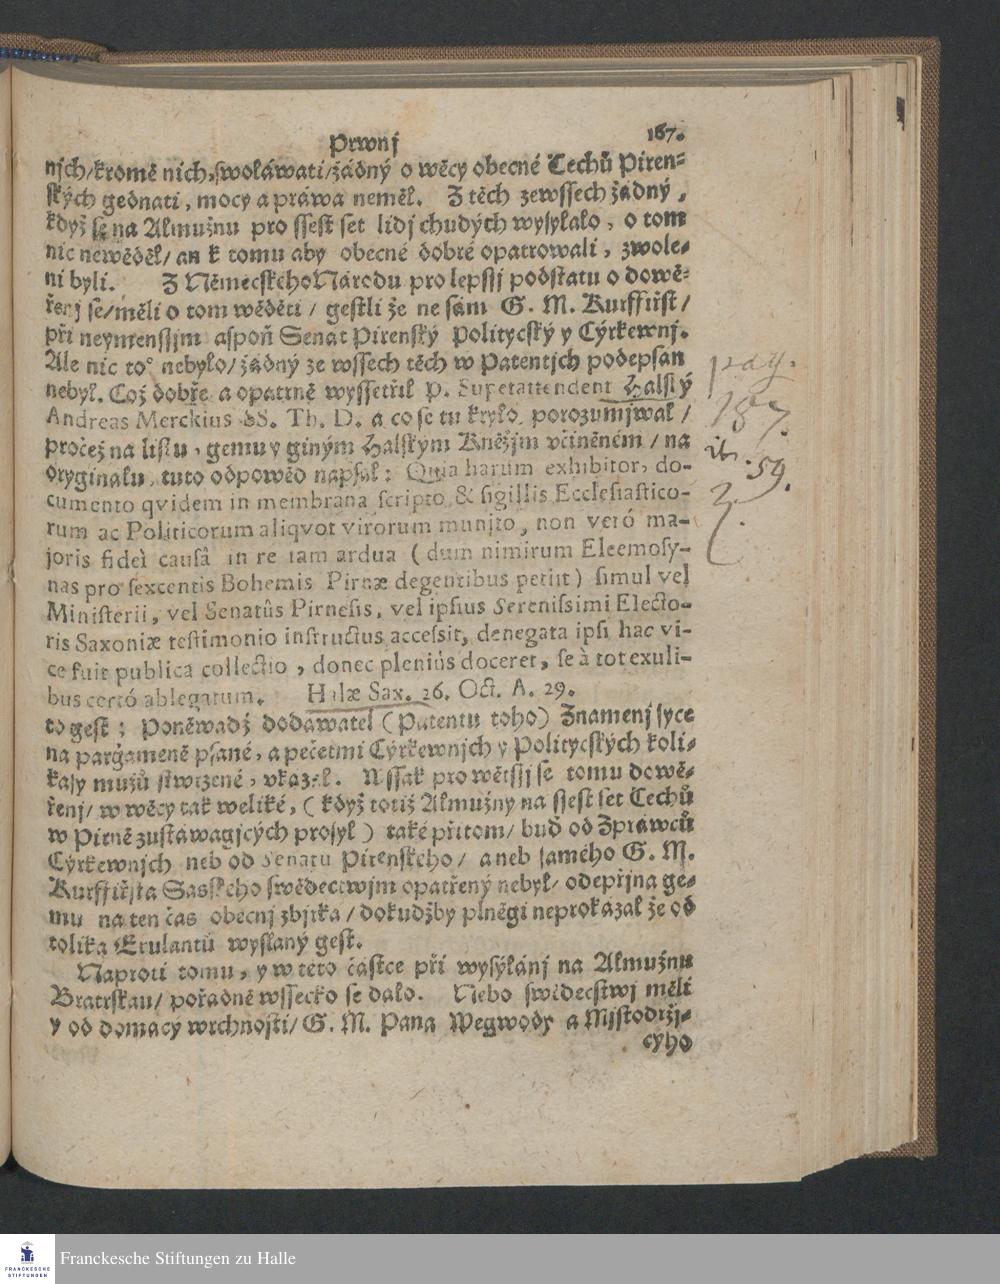 Prwnj 167.
njch/kromě nich, swoláwati/žádný o wěcy obecné Čechů Piren-
ských gednati, mocy a práwa neměl. Z těch zewssech žádný,
když se na Almužnu pro ssest set lidj chudých wysylalo, o tom
nic newěděl/ an k tomu aby obecné dobré opatrowali, zwole-
ni byli. Z Německého Národu pro lepssj podstatu o dowě-
řenj se/měli o tom wěděti / gestli že ne sám G. M. Kurffiřst /
při neymenssjm aspoň Senat Pirenský Politycský y Cýrkewnj.
Ale nic toº nebylo/ žádný ze wssech těch w Patentjch podepsán
nebyl. Což dobře a opatrně wyssetřil P. Superattendent Halský
Andreas Merckius SS. Th. D. a co se tu krylo, porozumjwal /
pročež na listu, gemu y giným Halským Kněžjm včiněném / na
Oryginalu, tuto odpowěd napsal: Quia harum exhibitor, do-
cumento qvidem in membrana scripto & sigillis Ecclesiastico-
rum ac Politicorum aliqvot virorum munito, non veró ma-
joris fidei causâ in re tam ardua (dum nimirum Eleemosy-
nas pro sexcentis Bohemis Pirnæ degentibus petiit) simul vel
Ministerii, vel Senatûs Pirnesis, vel ipsius Serenissimi Electo-
ris Saxoniæ testimonio instructus accessit, denegata ipsi hac vi-
ce fuit publica collectio, donec pleniùs doceret, se à tot exuli-
bus certó ablegatum. Halæ Sax. 26. Oct. A. 29.
to gest; Poněwadž dodawatel (Patentu toho) Znamenj syce
na pargameně psané, a pečetmi Cýrkewnjch y Politycských koli-
kasy mužů stwrzené, vkázal. Wssak pro wětssj se tomu dowě-
řenj/ w wěcy tak weliké, (když totiž Almužny na ssest set Čechů
w Pirně zustáwagjcých prosyl) také přitom/ buď od Zpráwců
Cýrkewnjch neb od Senatu Pirenského/ aneb samého G. M.
Kurffiřsta Sasského swědectwjm opatřený nebyl/ odepřjna ge-
mu na ten čas obecnj zbjrka / dokudžby plněgi neprokázal že od
tolika Exulantů wyslaný gest.
Naproti tomu, y w této částce při wysýlánj na Almužnu
Bratrskau/ pořádně wssecko se dálo. Nebo swědecstwj měli
y od domácý wrchnosti/ G. M. Pana Wegwody a Mjstodržj-
cýho
pag.
187.
it.
59.
Franckesche Stiftungen zu Halle
FRANCKESCHE
STIFTUNGEN